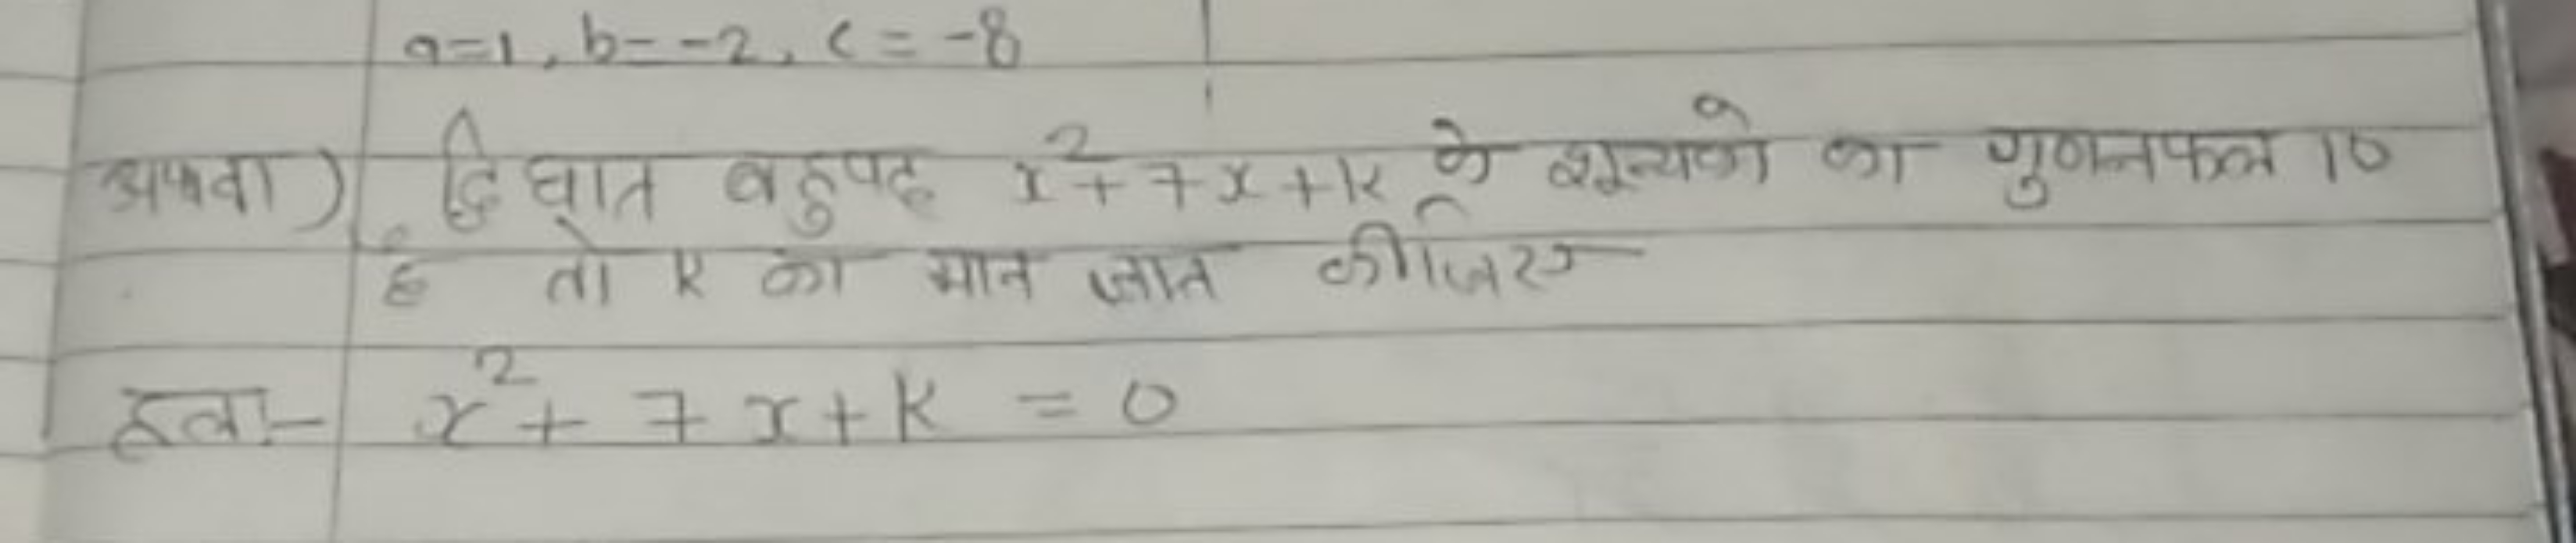 a=1, b=-2, c=-8
अथवा) द्विघात बहुपद x²+7x+k के शून्यकों का गुणनफल 10
है तो k का मान ज्ञात कीजिए
हल:- x²+7x+k=0